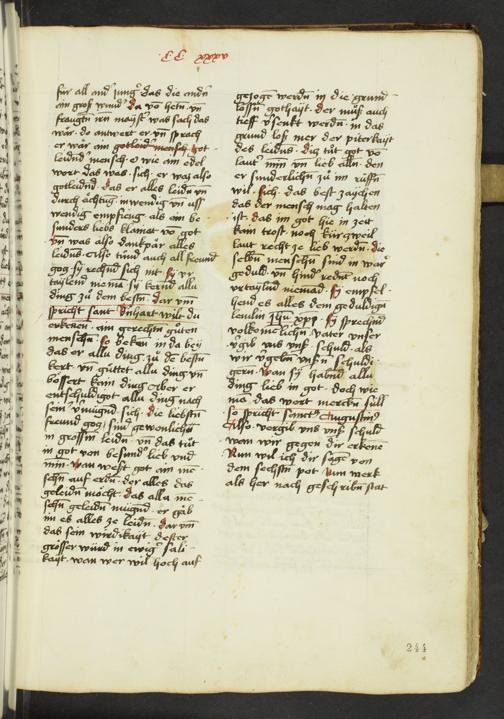 CC xxxv
für all and' jung' das die andn
ain groß wund' da vō hetn vn
fraugtn irn mayst' was sach das
wär · do antwort er vn sprach
er wär ain gotleidend mensch got
leidnd' mensch · o wie ain edel
wort das was · sich · er waz also
gotleidnd das er alles leidn vn
durch ächtug inwendig vn uss
wendig empfieng als ain be
sunders liebs klainat vō got
vn was also dankpär alles
leidns · Also tund auch all freund
gog sy rechnd sich nit sy er
taylend niema sy kernd allu
ding zu dem bestn · dar vm
spricht sant bnhart wilt du
erkenen · ain gerechtn guten
menschn · so beken in da bey
das er allu ding zu de bestn
kert vn gutter allu ding vn
bössert kain ding Aber er
entschuldigot allu ding nach
sein vmugnd · sich · die liebstn
freund gog · sind gewonlichn
in grossm leidn vn das tut
in got von besund' lieb vnd
min · wan west got ain me
schn auf erdn · der alles das
geleidn möcht das alle me
schn geleidn mugnd · er gäb
im es alles ze leidn · dar vm
das sein wirdikayt dester
grösser würd in ewig' säli
kayt · wan wer wil hoch auf
gezoge werdn in die grund
lossn gothayt · der muß auch
tieff v'senkt werdn · in das
grund loß mer der piterkayt
des leidns · diz tut got vō
laut' min vn lieb alln · den
er sunderlichn zu im rüffn
wil · sich · das best zaychen
das der mensch mag haltn
ist · das im got hie in zeit
kain trost noch kurtzweil
laut recht ze lieb werdn · die
selbn menschn sind in war'
geduld vn hind' rednt noch
vrtaylnd niemad · sy empfel
hend es alles dem geduldign
lemlin Jhu xpo · sy sprechnd
volkomelichn vater vnser
v'gib vns vnß schuld · als
wir v'gebn vnsn schuldi
gern · wan sy habnd allu
ding lieb in got · doch wie
nu · das wort mercku süll
so spricht sanct' Augustin'
Also · vergib vns vnß schuld
wan wir gegen dir erkene
Nun wil ich dir sage von
dem sechsten pot Nun merk
als her nach geschribn stat
244